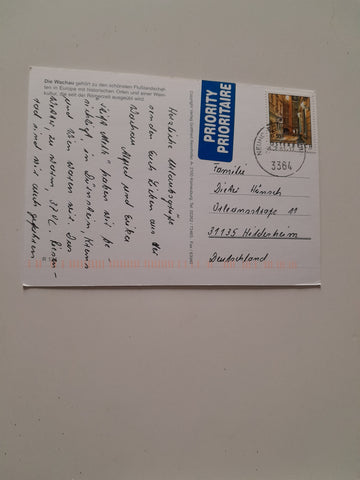 Die Wachau gehört zu den schönsten Flußlandschaf-
ten in Europa mit historischen Orten und einer Wein-
kultur, die seit der Römerzeit ausgeübt wird.
Herzliche Urlaubsgrüße
senden Euch Lieben aus der
Wachau Alfred und
"Stift Melk" haben wir be-
sichtigt in Dürnstein, Krems
und Wien waren wir. Das
Wetter, zu warm, 37°C.
sind wir auch gefahren
PRIORITY
PRIORITAIRE
3364
Familie
Dieter Hänsch
Orleansstraße 11
31135 Hildesheim
Deutschland